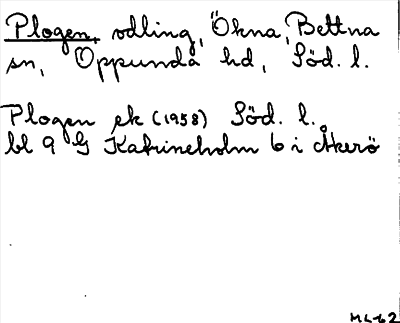 Plogen, odling, Ökna, Bettna
sn, Oppunda hd, Söd. l.
Plogen ek (1958) Söd. l.
bl 9 G Katrineholm 6 i Åkerö
ML-62